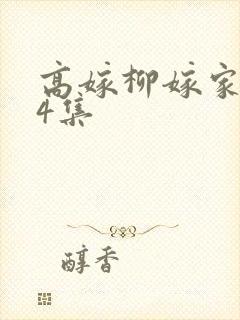 高嫁柳嫁家
4集
醇香